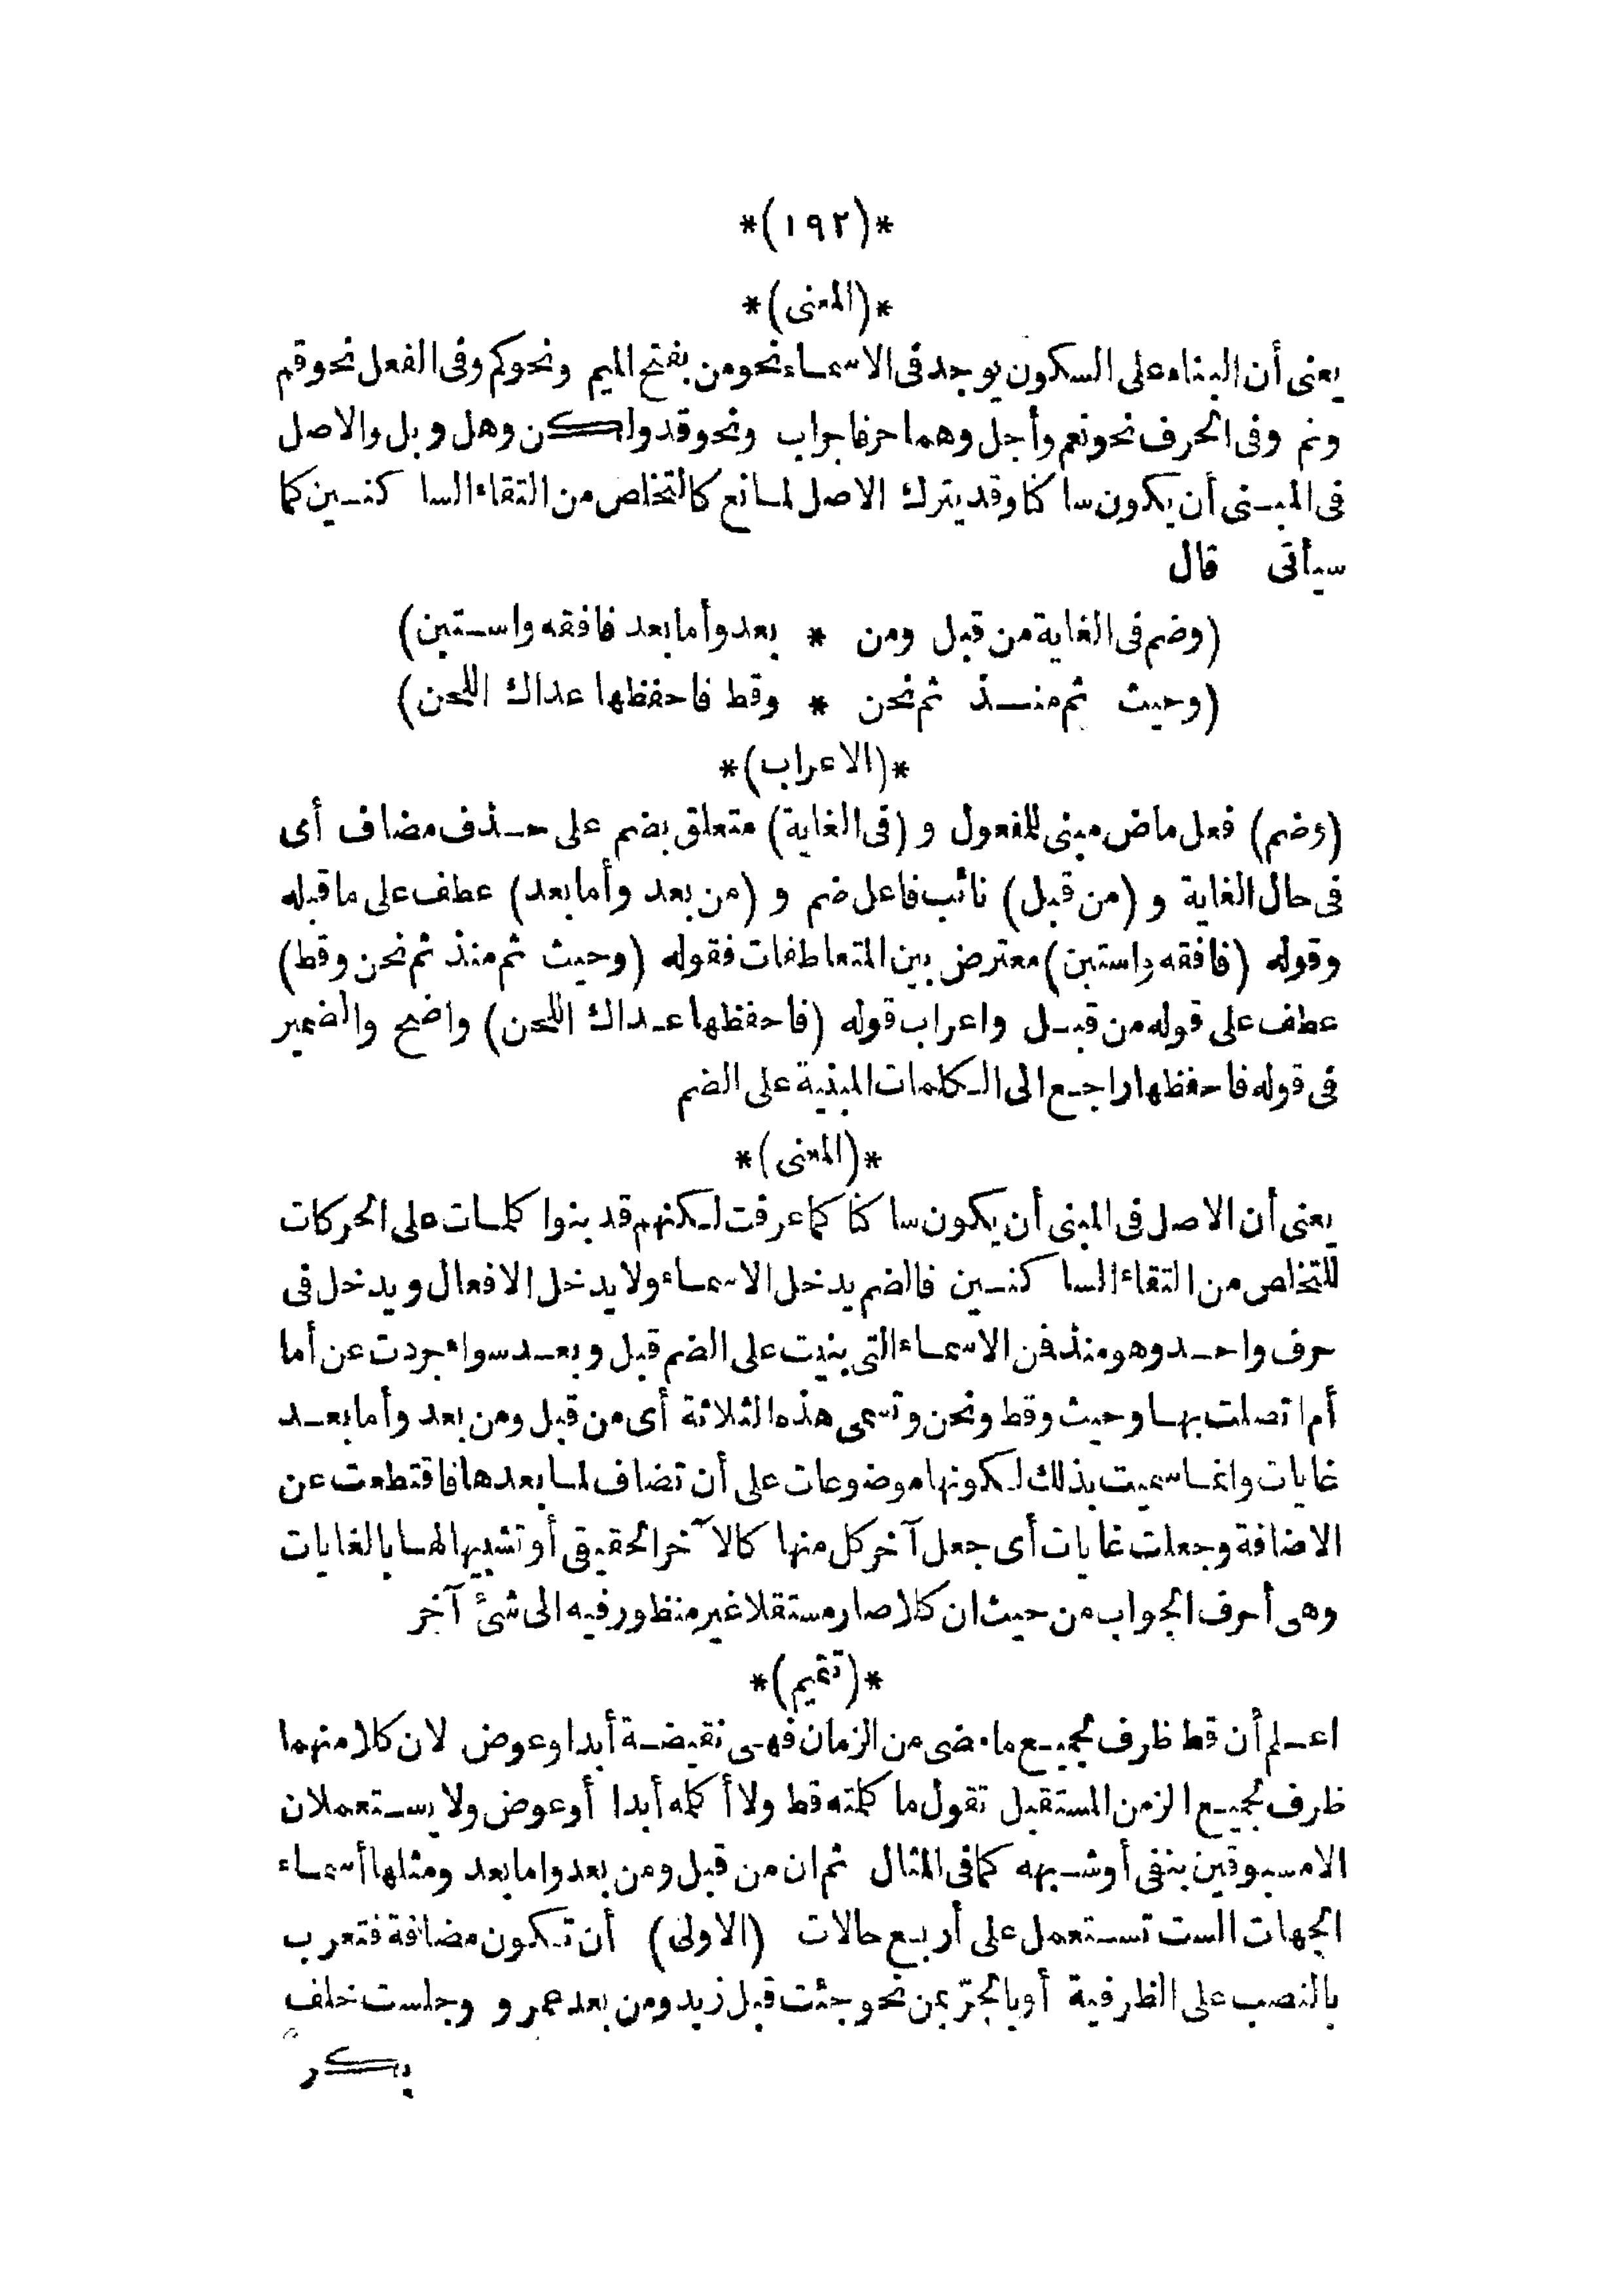 *(١٩٢)*
*(المعنى)*
يعنى أن البناء على السكون يوجد فى الاسماء نحو من بفتح الميم ونحوكم وفى الفعل نحو قم
ونم وفى الحرف نحو نعم وأجل وهما حرفا جواب ونحو قد ولكن وهل وبل والاصل
فى المبنى أن يكون ساكنا وقد يترك الاصل لمانع كالتخلص من التقاء الساكنين كما
سيأتى قال
(وضم فى الغاية من قبل ومن * بعد وأما بعد فافقه واستبن)
(وحيث ثم منذ ثم نحن * وقط فاحفظها عداك اللحن)
*(الاعراب)*
(وضم) فعل ماض مبنى للمفعول و (فى الغاية) متعلق بضم على حذف مضاف أى
فى حال الغاية و (من قبل) نائب فاعل ضم و (من بعد وأما بعد) عطف على ما قبله
وقوله (فافقه واستبن) معترض بين المتعاطفات فقوله (وحيث ثم منذ ثم نحن وقط)
عطف على قوله من قبل واعراب قوله (فاحفظها عداك اللحن) واضح والضمير
فى قوله فاحفظها راجع الى الكلمات المبنية على الضم
*(المعنى)*
يعنى أن الاصل فى المبنى أن يكون ساكنا كما عرفت لكنهم قد بنوا كلمات على الحركات
للتخلص من التقاء الساكنين فالضم يدخل الاسماء ولا يدخل الافعال ويدخل فى
حرف واحد وهو منذ فمن الاسماء التى بنيت على الضم قبل وبعد سواء جردت عن أما
أم اتصلت بها وحيث وقط ونحن وتسمى هذه الثلاثة أى من قبل ومن بعد وأما بعد
غايات وانما سميت بذلك لكونها موضوعات على أن تضاف لما بعدها فاقتطعت عن
الاضافة وجعلت غايات أى جعل آخر كل منها كالآخر الحقيقى أو تشبيها لها بالغايات
وهى أحرف الجواب من حيث ان كلا صار مستقلا غير منظور فيه الى شئ آخر
*(تتميم)*
اعلم أن قط ظرف لجميع ما مضى من الزمان فهى نقيضة أبدا وعوض لان كلا منهما
ظرف لجميع الزمن المستقبل تقول ما كلمته قط ولا أكلمه أبدا أو عوض ولا يستعملان
الا مسبوقين بنفى أو شبهه كما فى المثال ثم ان من قبل ومن بعد واما بعد ومثلها أسماء
الجهات الست تستعمل على أربع حالات (الاولى) أن تكون مضافة فتعرب
بالنصب على الظرفية أو بالجرّ بمن نحو جئت قبل زيد ومن بعد عمرو وجلست خلف
بكر